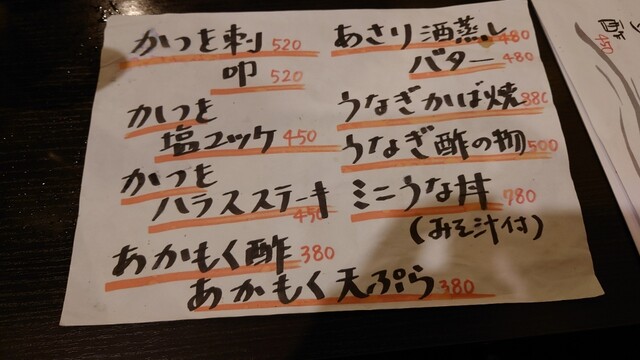 かつを刺 520
叩 520
かつを
塩ユッケ 450
かつを
ハラスステーキ
450
あかもく酢 380
あかもく天ぷら 380
あさり酒蒸し 480
バター 480
うなぎかば焼 880
うなぎ酢の物 500
ミニうな丼 780
(みそ汁付)
450